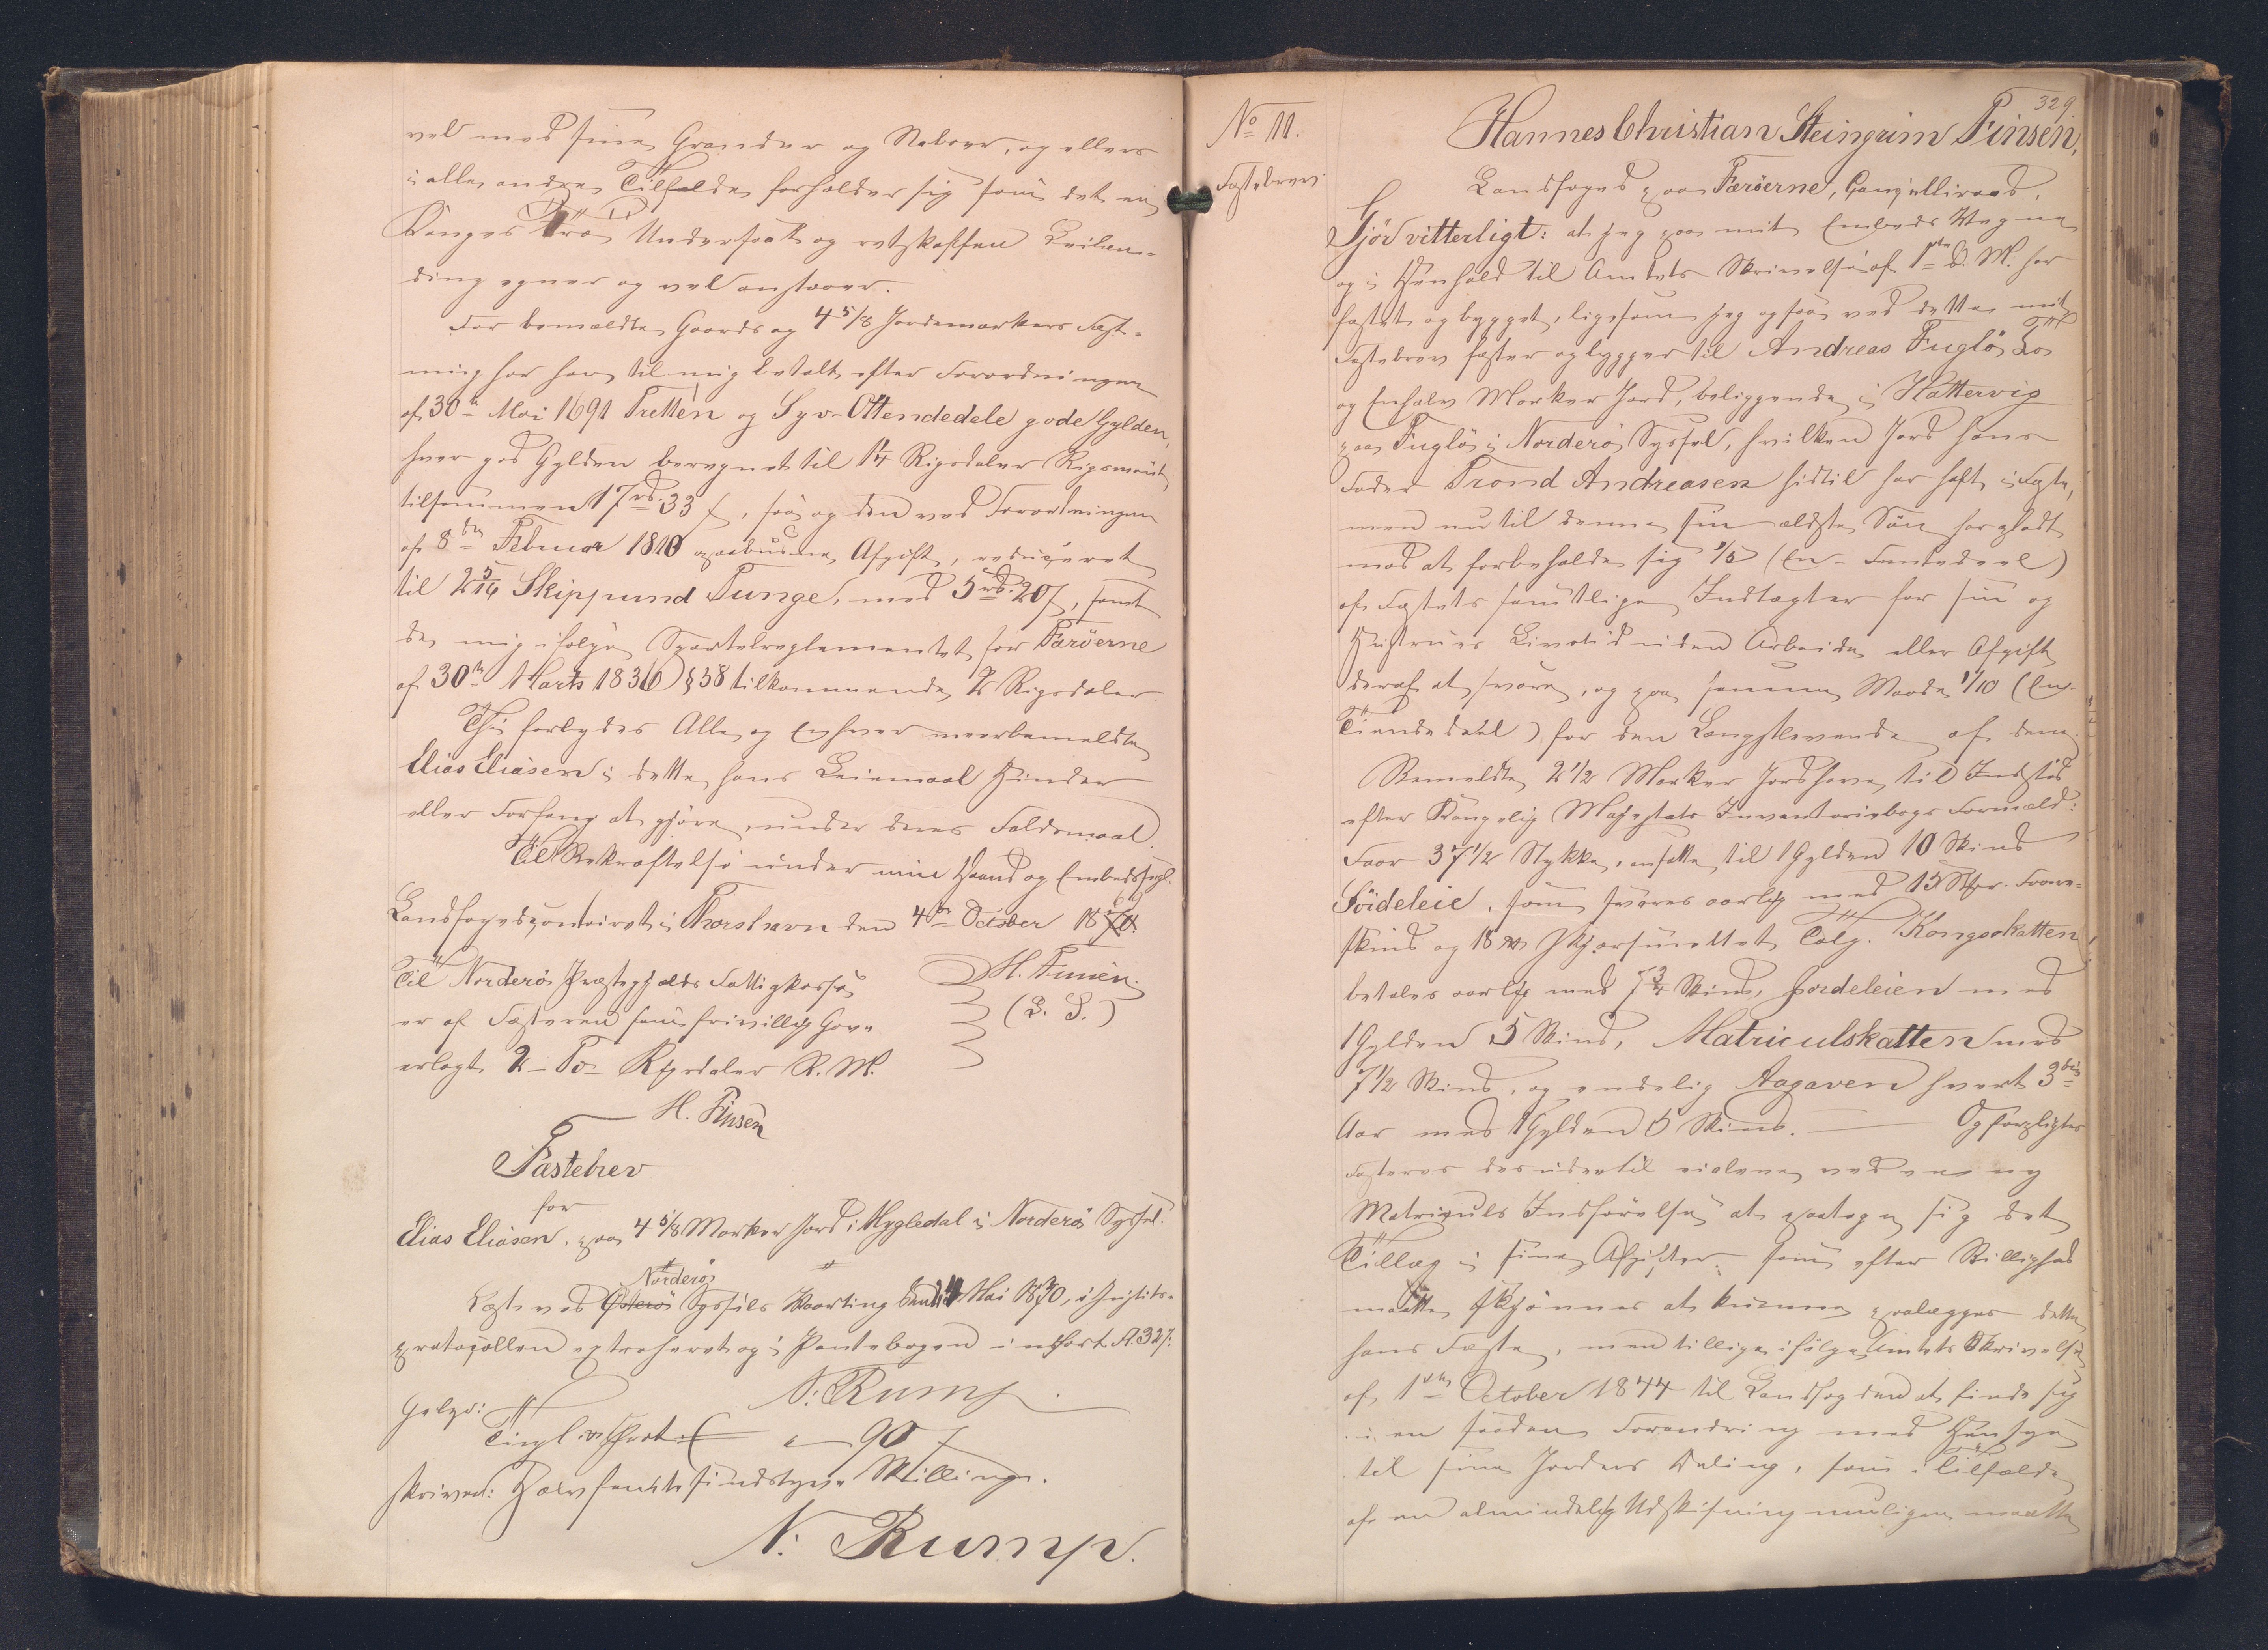 vel med sine Grander og Naboer, og ellers
i alle andre Tilfælde forholder sig som det en
Konges Tro Undersaat og retskaffen Leilæn-
ding egner og vel anstaaer.
For bemeldte Gaards og 4 5/8 Jordemarkers Fæst-
ning har han til mig betalt efter Forordningen
af 30te Mai 1691 Tretten og Syv-Ottendedele gode Gylden,
hver god Gylden beregnet til 1 1/4 Rigsdaler Rigsmönt,
tilsammen 17rd. 33 ß, saa og den ved Forordningen
af 8de Februar 1810 paabudne Afgift, reduceret
til 2 5/16 Skippund Tunge, med 5rd. 20ß, samt
de mig ifølge Sportelreglementet for Færöerne
af 30te Marts 1836 § 38 tilkommende 2 Rigsdaler.
Thi forbydes Alle og Enhver meerbemeldte
Elias Eliasen i dette hans Leiemaal Hinder
eller Forfang at gjöre, under deres Faldsmaal.
Til Bekræftelse under min Haand og Embedssegl.
Landfogedcontoiret i Thorshavn den 4de October 1869
Til Norderö Præstegjælds Fattigkasse
H. Finsen.
er af Fæsteren som frivillig Gave
(L. S.)
erlagt 2 - To - Rigsdaler R. M.
H. Finsen
Fæstebrev
for
Elias Eliasen, paa 4 5/8 Marker Jord i Mygledal i Norderö Syssel.
Norderö
Læst ved Österö Syssels Vaarting den Mai 1870, i Justits-
protocollen extraheret og i Pantebogen indfört fl. 327.
N: Rump.
Gebyr:
Tingl. og Paat: " - 90 ß
skriver: Halvfemtesindstyve Skilling.
N: Rump.
No 11.
Fæstebrev.
329
Hannes Christian Steingrim Finsen,
Landfoged paa Færöerne, Cancelliraad,
Gjör vitterligt: at jeg paa mit Embeds Vegne
og i Henhold til Amtets Skrivelse af 1ste d. M. har
fæstet og bygget, ligesom jeg ogsaa ved dette mit
Fæstebrev fæster og bygger til Andreas Fuglö To
og Enhalv Marker Jord, beliggende i Hattervig
paa Fuglö i Norderö Syssel, hvilken Jord hans
Fader Trond Andreasen hidtil har haft i Fæste,
men nu til denne sin ældste Sön har opladt
mod at forbeholde sig 1/5 (En - Femtedeel)
af Fæstets samtlige Indtægter for sin og
Hustrues Livstid uden Arbeide eller Afgift
deraf at svare, og paa samme Maade 1/10 (En-
Tiendedeel) for den Længstlevende af dem.
Bemeldte 2 1/2 Marker Jord have til Indstöd
efter Kongelig Majestæts Inventariebogs Formæld:
Faar 37 1/2 Stykke, ansatte til 1 Gylden 10 Skind
Söideleie, som svares aarlig med 15 Stkr. Faare-
skind og 18 ℔ skjærsmeltet Talg. Kongsskatten
betales aarlig med 7 3/4 Skind, Jordeleien med
1 Gylden 5 Skind, Matriculskatten med
7 1/2 Skind, og endelig Aagaven hvert 3die
Aar med 1 Gylden 5 Skind. — Og forpligtes
Fæsteren desuden til ved en ny
Matriculs Indförelse at paatage sig det
Tillæg i sine Afgifter, som efter Billighed
maatte skjönnes at kunne paalægges dette
hans Fæste, men tillige ifølge Amtets Skrivelse
af 1ste October 1844 til Landfogden at finde sig
i en saadan Forandring med Hensyn
til sine Jorders Deling, som i Tilfælde
af en almindelig Udskiftning muligen maatte